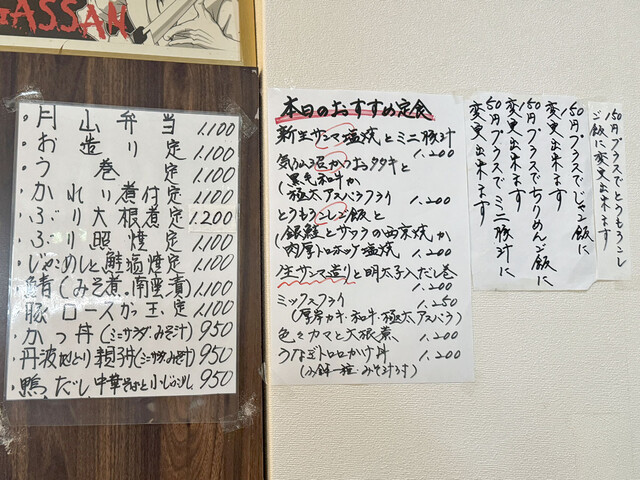 GASSAN
・月山弁当 1.100
・お造り定 1.100
・う巻定 1.100
・かれい煮付定 1.100
・ぶり大根煮定 1.200
・ぶり照焼定 1.100
・じゃこめしと鮭塩焼定 1.100
・鯖(みそ煮.南蛮漬) 1.100
・豚ロースカツ玉定 1.100
・かつ丼(ミニサラダ・みそ汁) 950
・丹波地どり親子丼(ミニサラダ・みそ汁) 950
・鴨だし中華そばと小じゃこめし 950
本日のおすすめ定食
新生サンマ塩焼とミニ豚汁
1.200
気仙沼かつおタタキと
(黒毛和牛か
極太アスパラフライ 1.200
とうもろこしご飯と
(銀鮭とサワラの西京焼か
肉厚トロホッケ塩焼 1.200
生サンマ造りと明太子入だし巻
1.200
ミックスフライ 1.250
(厚岸カキ・和牛・極太アスパラ)
色々カマと大根煮 1.200
うなぎトロロかけ丼 1.200
(小鉢一種・みそ汁付)
150円プラスでとうもろこし
ご飯に変更出来ます
150円プラスでじゃこご飯に
変更出来ます
150円プラスでちりめんご飯に
変更出来ます
150円プラスでミニ豚汁に
変更出来ます